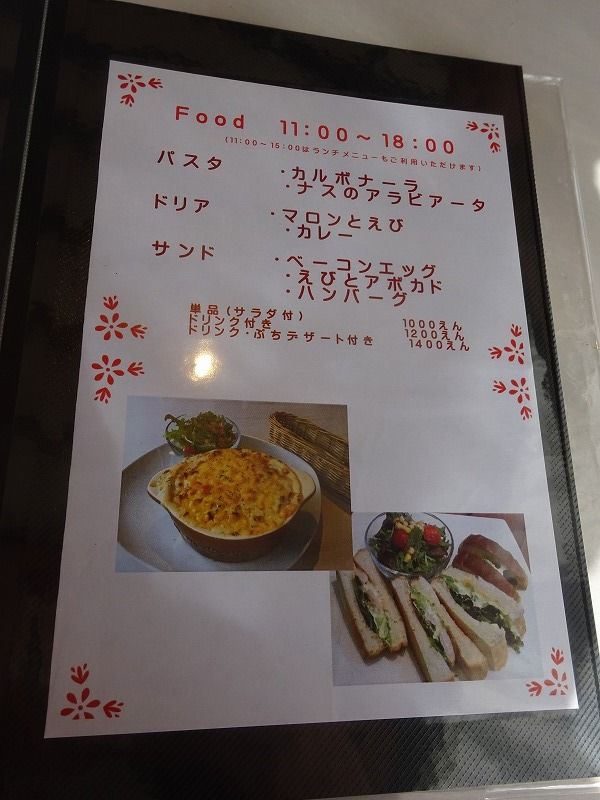 Food 11:00～18:00
(11:00～15:00はランチメニューもご利用いただけます)
パスタ ・カルボナーラ
・ナスのアラビアータ
ドリア ・マロンとえび
・カレー
サンド ・ベーコンエッグ
・えびとアボカド
・ハンバーグ
単品(サラダ付) 1000えん
ドリンク付き 1200えん
ドリンク・ぷちデザート付き 1400えん